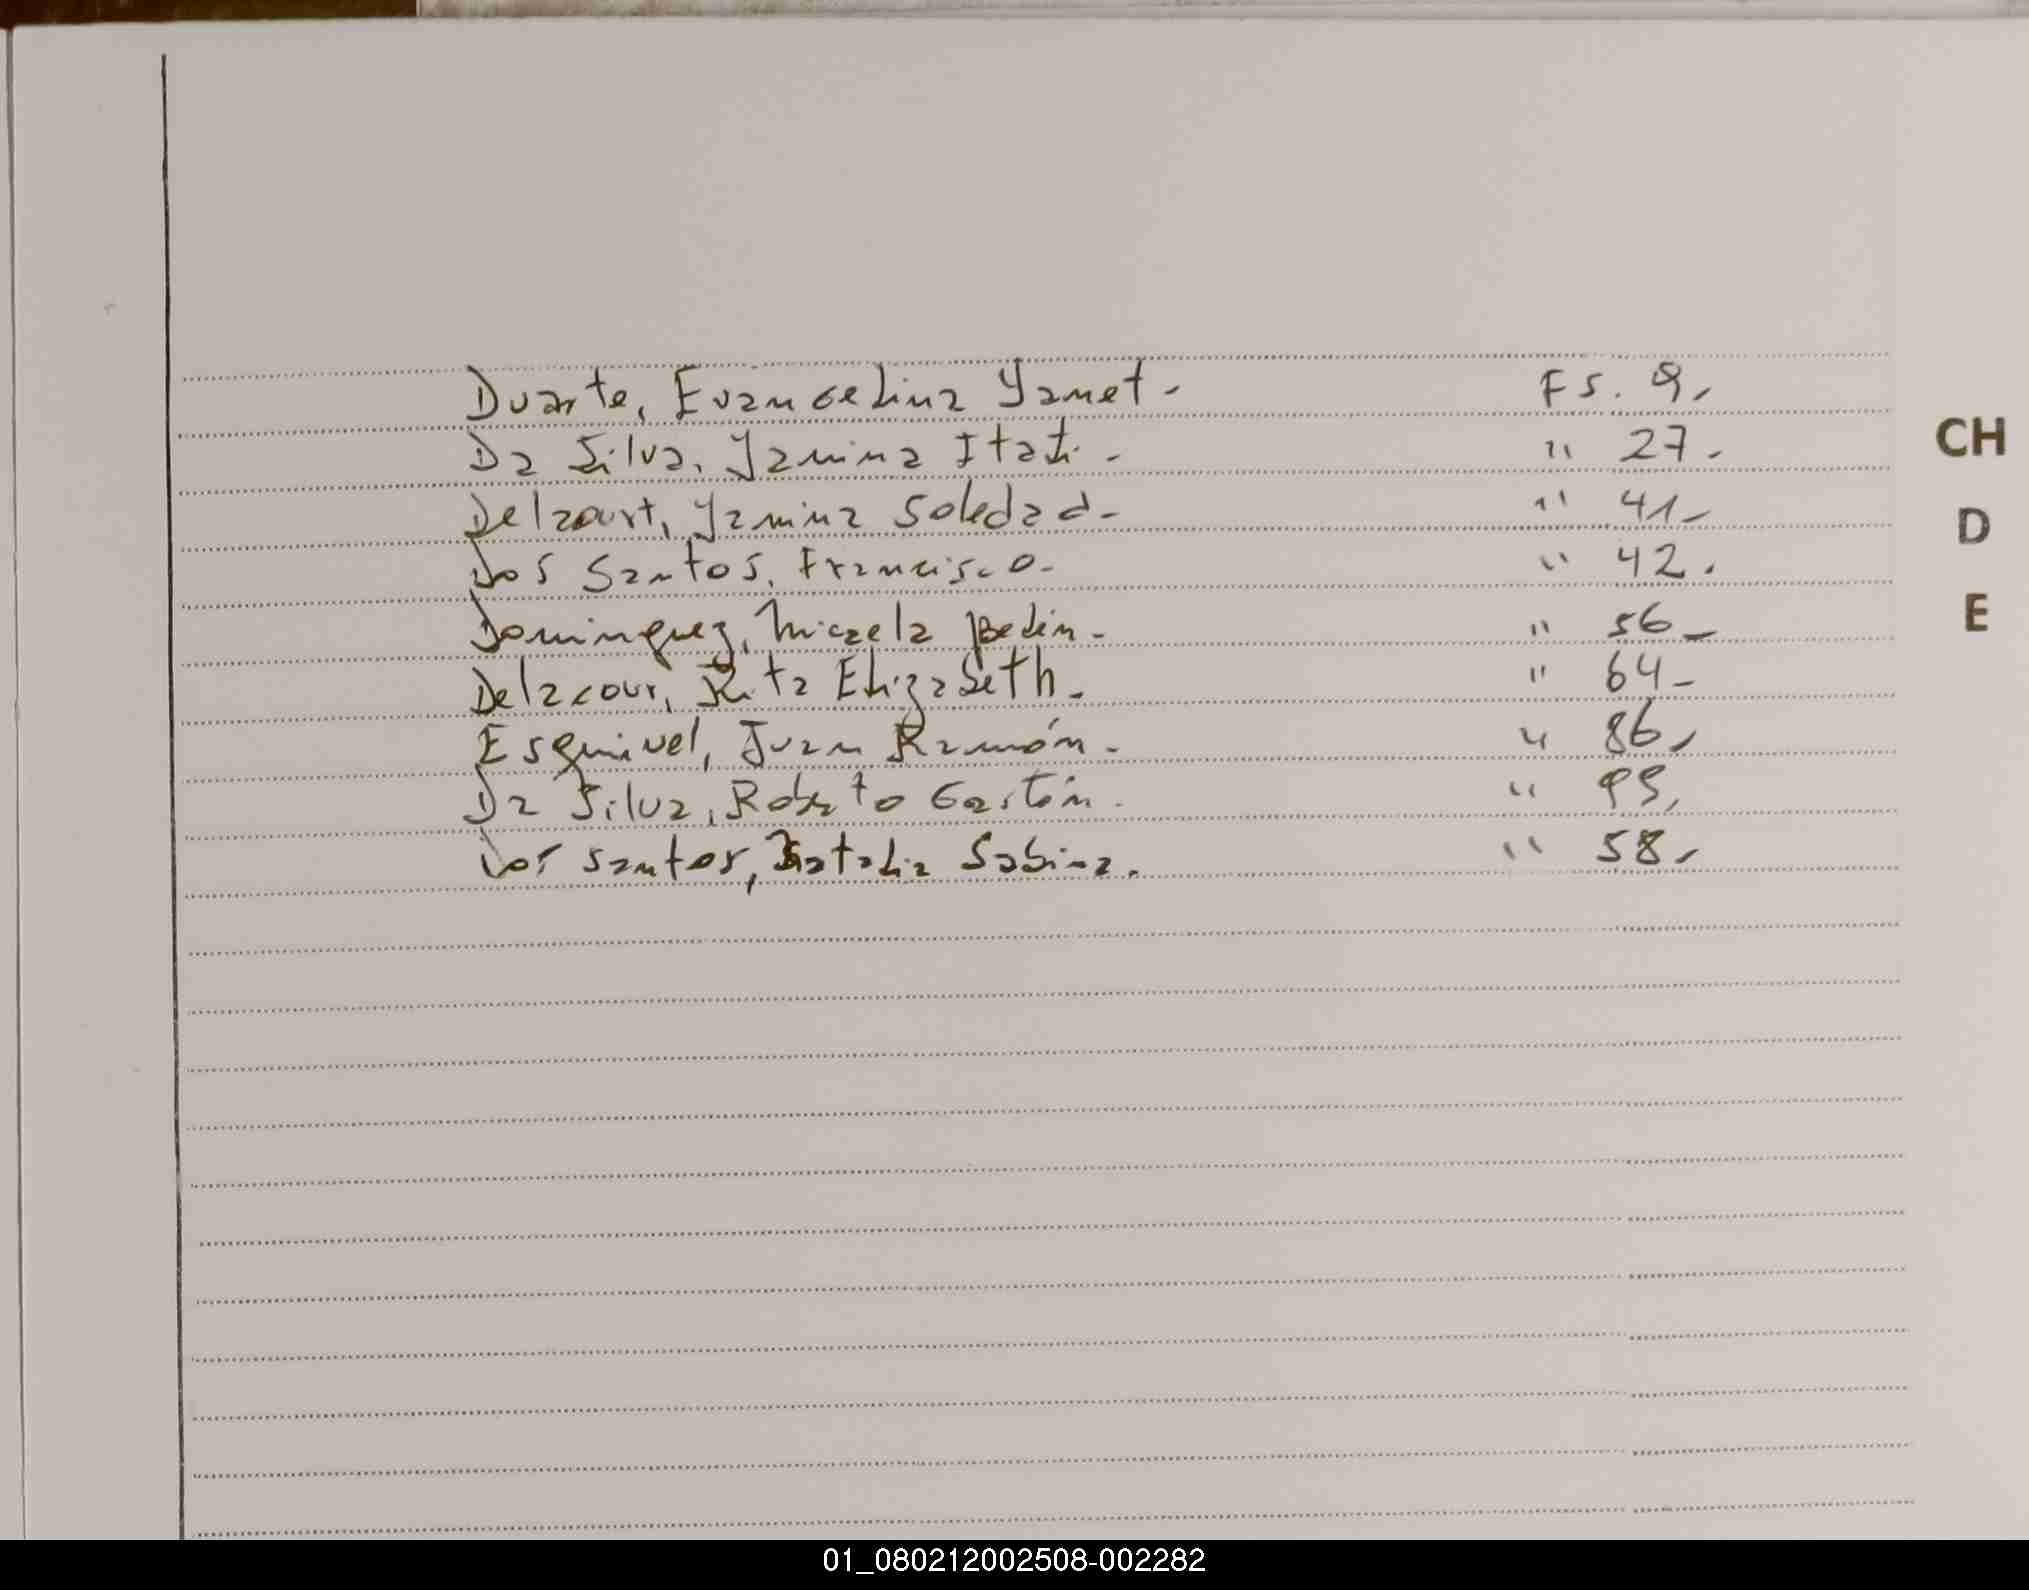 Duarte, Evangelina Yanet. Fs. 9.
Da Silva, Yanina Itati. " 27.
Delacourt, Yanina Soledad. " 41.
CH
Dos Santos, Francisco. " 42.
D
Dominguez, Micaela Belén. " 56.
E
Delacour, Rita Elizabeth. " 64.
Esquivel, Juan Ramón. " 86.
Da Silva, Roberto Gastón. " 99.
Dos Santos, Natalia Sabina. " 58.
01_080212002508-002282